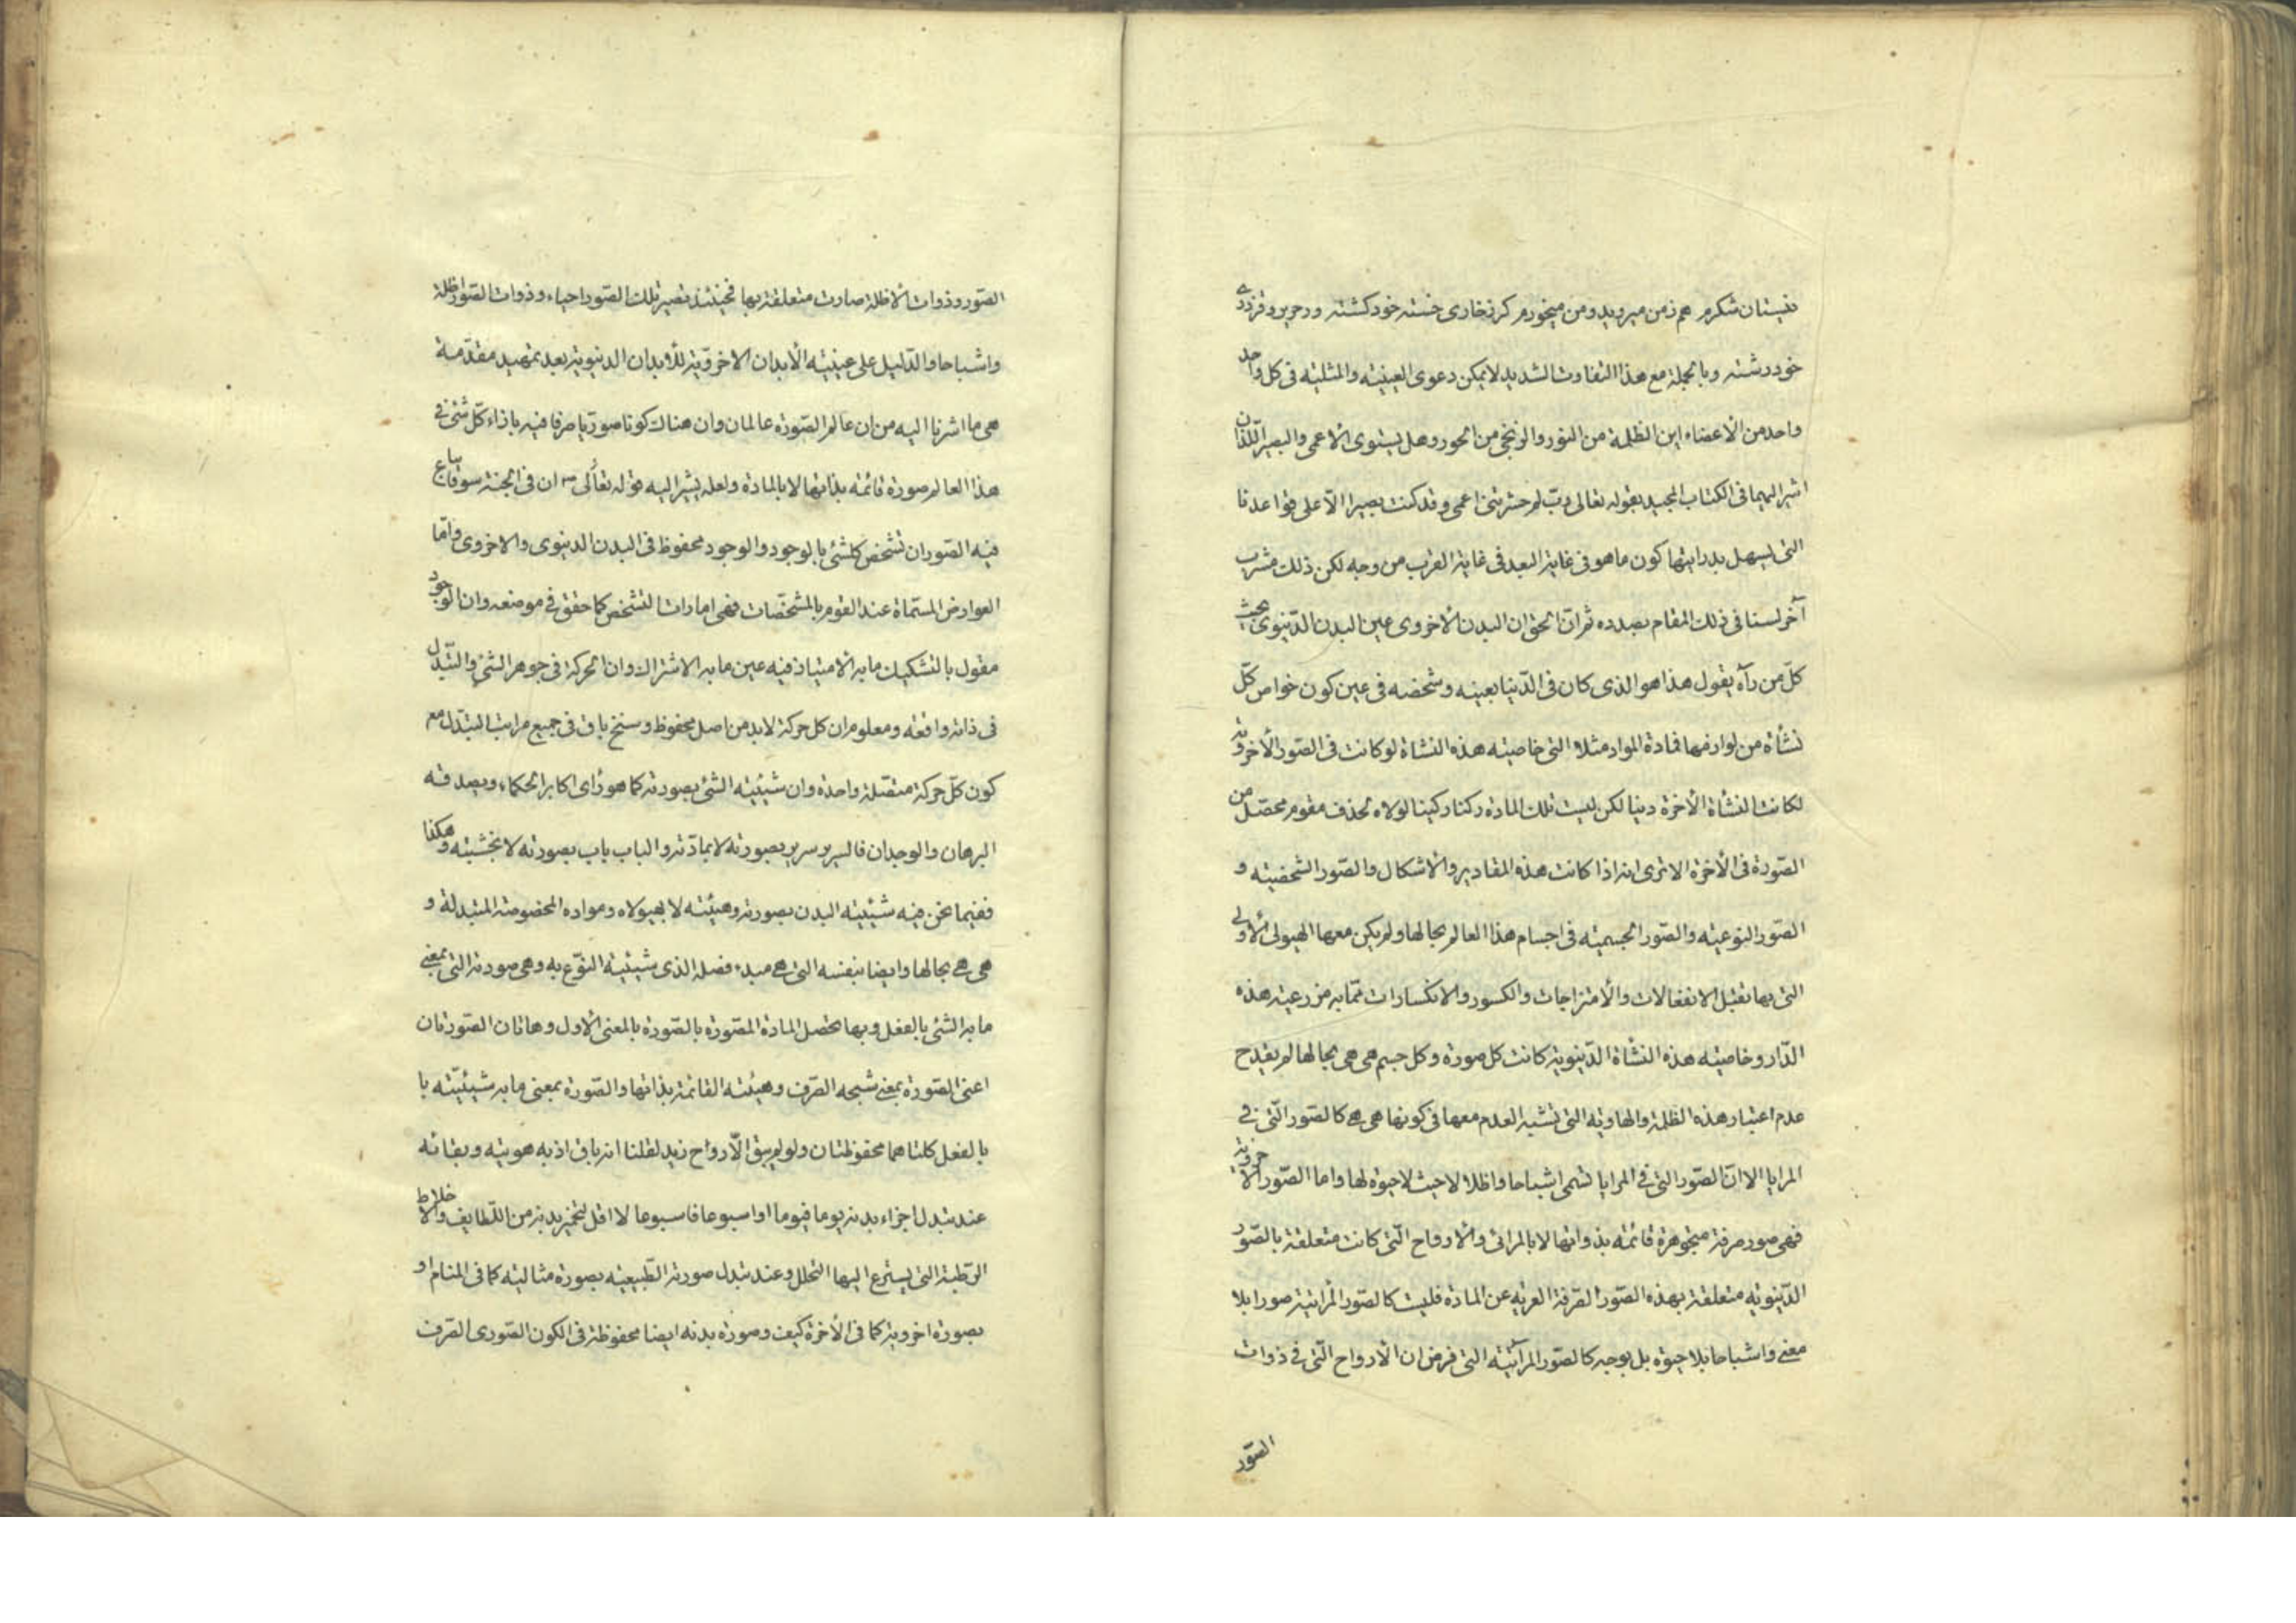 نیستان شکرم هم زمن میروید ومن میخورم کرزخاری خسته خود کشته ور حریر وقز دری
خود رشته وبالجملة مع هذا التفاوت الشدید لایمکن دعوی العینیته والمثلیته فی کل واحد
واحد من الأعضاء این الظلمة من النور والزنجی من الحور وهل یستوی الأعمی والبصیر اللذان
اشیر الیهما فی الکتاب المجید بقوله تعالی رب لم حشرتنی اعمی وقد کنت بصیرا الّا علی قواعدنا
التی یسهل بدرایتها کون ما هو فی غایة البعد فی غایة القرب من وجه لکن ذلک مشرب
آخر لسنا فی ذلک المقام بصدده ثم انّ الحق ان البدن الأخروی عین البدن الدّنیوی بحیث
کلّ من رآه یقول هذا هو الذی کان فی الدّنیا بعینه وشخصه فی عین کون خواص کلّ
نشأة من لوازمها فمادة المواد مثلا التی خاصیته هذه النشاة لو کانت فی الصّور الأخرویة
لکانت النشأة الأخرة دنیا لکن لیست تلک المادة رکنا رکینا لولاه لحذف مقوم محصّل من
الصّورة فی الأخرة الا تری انه اذا کانت هذه المقادیر والأشکال والصّور الشخصیته و
الصّور النوعیته والصّور الجسمیته فی اجسام هذا العالم بحالها ولم یکن معها الهیولی الأولی
التی بها تقبل الانفعالات والأمتزاجات والکسور والانکسارات ممّا به مزرعیته هذه
الدّار وخاصیته هذه النشأة الدّنیویة کانت کل صورة وکل جسم هی هی بحالها لم یقدح
عدم اعتبار هذه الظلمة والهاویة التی تشبه العدم معها فی کونها هی هی کالصّور الّتی فی
المرایا الا انّ الصّور التی فی المرایا تسمی اشباحا واظلالا حیث لا حیوة لها واما الصّور الأخرویة
فهی صور صرفة متجوهرة قائمته بذواتها لا بالمرائی والأرواح الّتی کانت متعلقة بالصّور
الدّنیویّه متعلقة بهذه الصّور الصّرفة العریّه عن المادة فلیست کالصّور المرآتیة صورا بلا
معنی واشباحا بلا حیوة بل بوجه کالصّور المرآتیّه التی فرض ان الأرواح الّتی فی ذوات
الصّور
الصّور وذوات الأظلة صارت متعلقة بها فحینئذ تصیر تلک الصّور احیاء وذوات الصّور اظلة
واشباحا والدّلیل علی عینیته الأبدان الاخرویّة للأبدان الدنیویة بعد تمهید مقدّمة
هی ما اشرنا الیه من ان عالم الصّورة عالمان وان هناک کونا صوریّا صرفا فیه بازاء کلّ شئ فی
هذا العالم صورة قائمته بذاتها لا بالمادة ولعله یشیر الیه قوله تعالی ان فی الجنة سوقا یباع
فیه الصّور ان تشخص کلشئ بالوجود والوجود محفوظ فی البدن الدنیوی والاخروی وامّا
العوارض المسمّاة عند القوم بالمشخّصات فهی امارات التشخص کما حقق فی موضعه وان الوجود
مقول بالتشکیک ما به الأمتیاز فیه عین ما به الاشتراک وان الحرکة فی جوهر الشئ والتبدّل
فی ذاته واقعته ومعلوم ان کل حرکة لابد من اصل محفوظ وسنخ باق فی جمیع مراتب التبدّل مع
کون کلّ حرکة متصّلة واحدة وان شیئیته الشئ بصورته کما هو رأی اکابر الحکماء ویصدقه
البرهان والوجدان فالسریر سریر بصورته لا بمادّته والباب باب بصورته لا بخشبیته وهکذا
ففیما نحن فیه شیئیته البدن بصورته وهیئته لا بهیولاه ومواده المخصوصة المتبدلة و
هی هی بحالها وایضا بنفسه التی هی مبدء فصله الذی شیئیة النّوع به وهی صورته التی بمعنی
ما به الشئ بالفعل وبها تحصل المادة المصّورة بالصّورة بالمعنی الأول وهاتان الصّورتان
اعنی الصّورة بمعنی شبحه الصّرف وهیئته القائمة بذاتها والصّورة بمعنی ما به شیئیّته با
بالفعل کلتاهما محفوظتان ولو لم یبق الّا رواح زید لقلنا انه باق اذ به هویته وبقائه
عند تبدل اجزاء بدنه یوما فیوما او اسبوعا فاسبوعا لا اقل لتخمیر بدنه من اللّطایف والأخلاط
الرّطبة التی یسترع الیها التحلل وعند تبدل صورته الطّبیعیته بصورة مثالیته کما فی المنام او
بصورة اخرویة کما فی الأخرة کیف وصورة بدنه ایضا محفوظة فی الکون الصّوری الصّرف